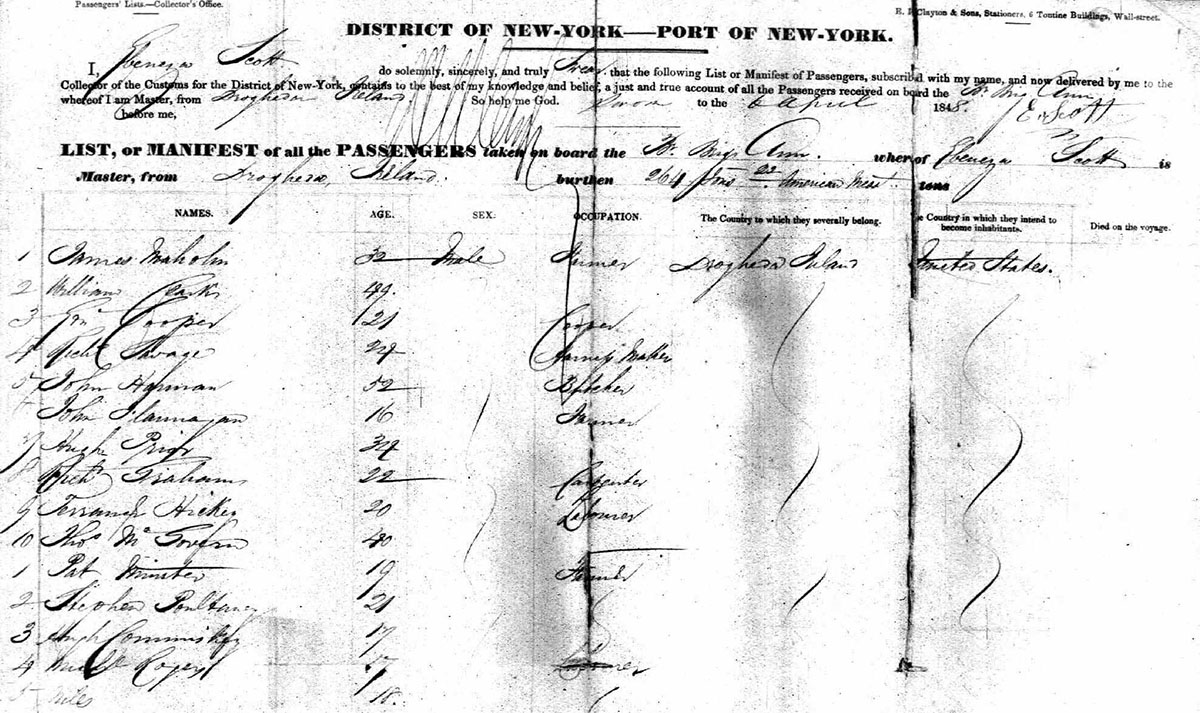 Passengers' Lists.—Collector's Office.
E. Clayton & Sons, Stationers, 6 Tontine Buildings, Wall-street.
DISTRICT OF NEW-YORK—PORT OF NEW-YORK.
I, Ebeneza Scott do solemnly, sincerely, and truly Swear that the following List or Manifest of Passengers, subscribed with my name, and now delivered by me to the
Collector of the Customs for the District of New-York, contains to the best of my knowledge and belief, a just and true account of all the Passengers received on board the Br Brig Ann
whereof I am Master, from Drogheda Ireland. So help me God. Sworn to the 6 April 1848.
before me, E. Scott
LIST, or MANIFEST of all the PASSENGERS taken on board the Br Brig Ann. whereof Ebeneza Scott is
Master, from Drogheda, Ireland. burthen 264 tons American Meast. tons
NAMES. AGE. SEX. OCCUPATION. The Country to which they severally belong. The Country in which they intend to become inhabitants. Died on the voyage.
1 James 32 Male Farmer Drogheda Ireland United States.
2 William Clark 49.
3 Wm Cooper 21 Cooper
4 Richd Savage 24 Harness Maker
5 John Harman 52 Butcher
John Flannagan 16 Farmer
7 Hugh 34
8 Richd Graham 22 Carpenter
9 Terrance Hickey 20 Labourer
10 Thos McGovern 40
1 Pat 19 Farmer
2 Stephen 21
3 Hugh Commiskey 17
4 Rogers 17
5 18.